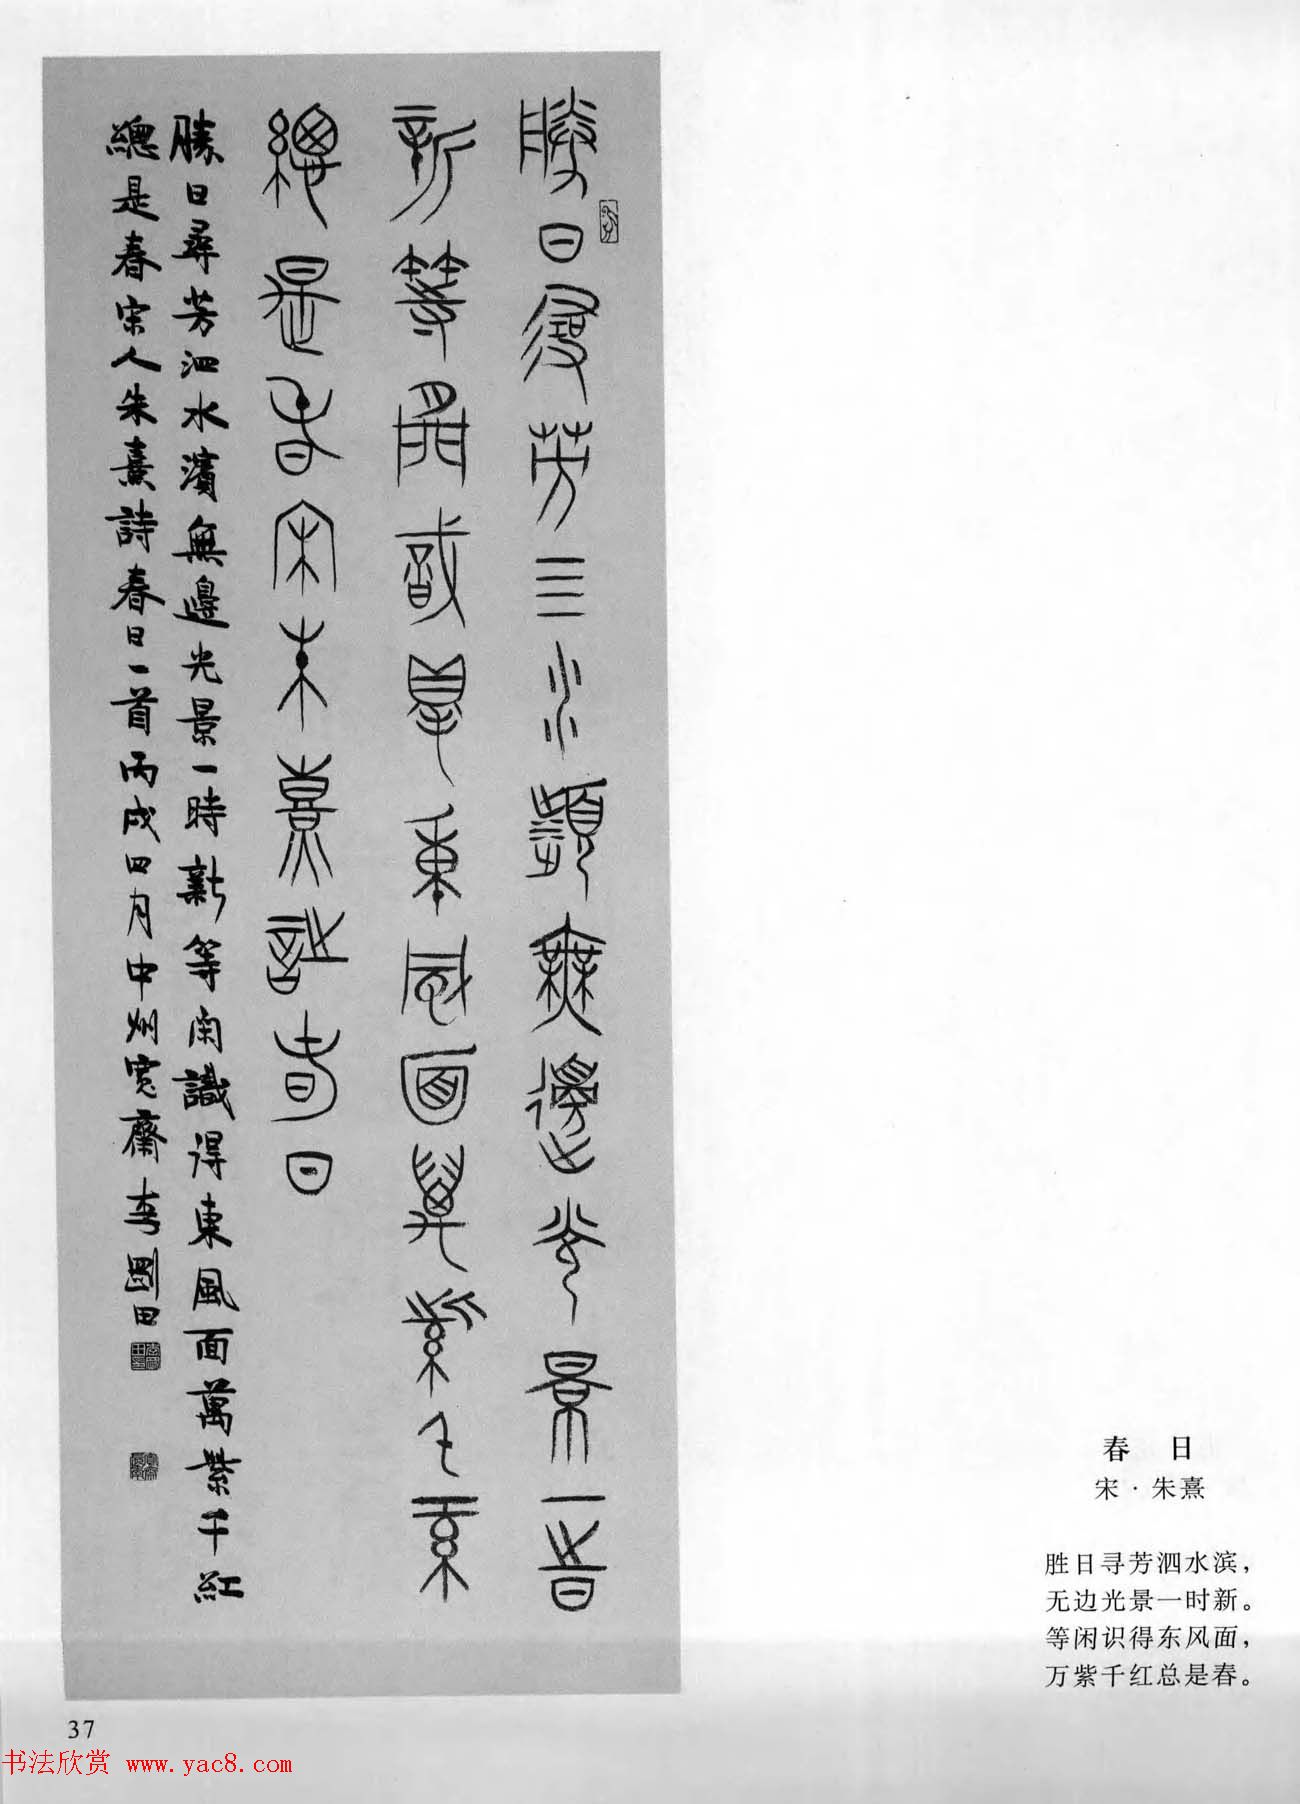 勝日尋芳三水瀕無邊光景一時
新等閒識得東風面萬紫千紅
總是春宋朱熹詩春日
勝日尋芳泗水濱無邊光景一時新等閑識得東風面萬紫千紅
總是春宋人朱熹詩春日一首丙戌四月中州寬齋李剛田
春 日
宋·朱熹
胜日寻芳泗水滨，
无边光景一时新。
等闲识得东风面，
万紫千红总是春。
37
书法欣赏 www.yac8.com